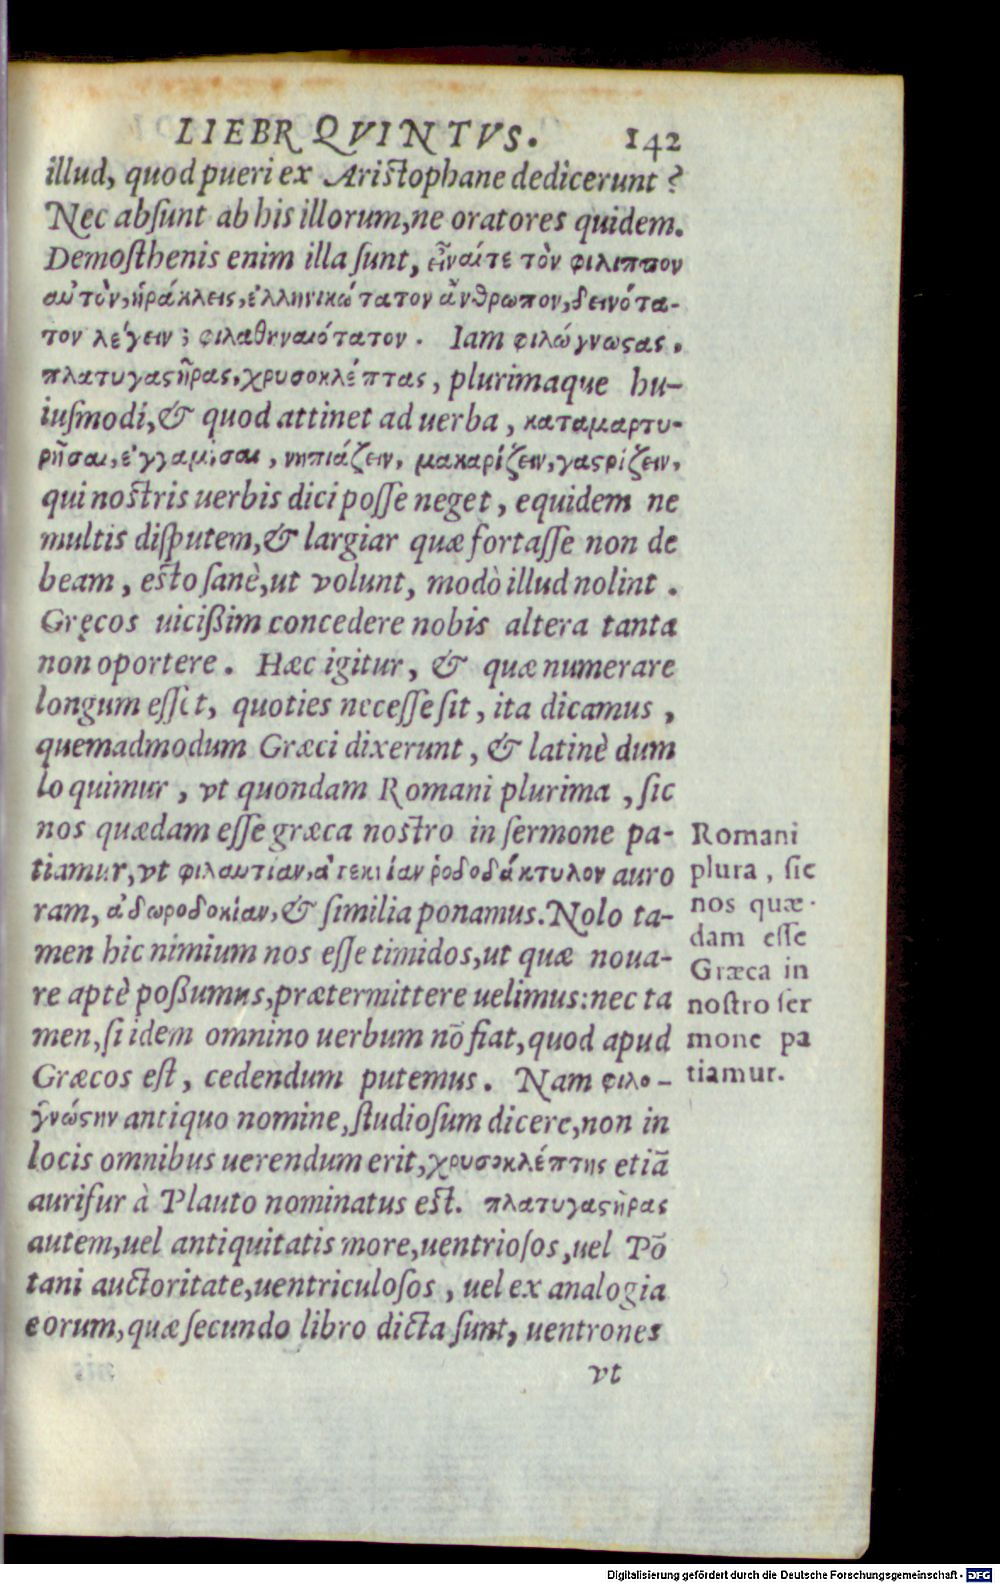 LIEBR QVINTVS. 142
illud, quod pueri ex Aristophane dedicerunt?
Nec absunt ab his illorum,ne oratores quidem.
Demosthenis enim illa sunt, εἶναίτε τὸν φιλιππον
αυτὸν,ἡράκλεις,ἑλληνικώτατον ἄνθρωπον,δεινότα-
τον λέγειν; φιλαθηναιότατον. Iam φιλώγνωςας,
πλατυγαςῆρας,χρυσοκλέπτας, plurimaque hu-
iusmodi,& quod attinet ad uerba, καταμαρτυ-
ρῆσαι, νηπιάζειν, μακαρίζειν,γαςρίζειν,
qui nostris uerbis dici posse neget, equidem ne
multis disputem,& largiar quæ fortasse non de
beam, esto sanè,ut volunt, modò illud nolint.
Gręcos uicißim concedere nobis altera tanta
non oportere. Hæc igitur, & quæ numerare
longum essct, quoties necesse sit, ita dicamus,
quemadmodum Græci dixerunt, & latinè dum
lo quimur, vt quondam Romani plurima, sic
nos quædam esse græca nostro in sermone pa-
tiamur,vt φιλαυτιαν, ῥοδοδάκτυλον auro
ram, ἀδωροδοκίαν,& similia ponamus. Nolo ta-
men hic nimium nos esse timidos,ut quæ noua-
re aptè poßumus,prætermittere uelimus:nec ta
men,si idem omnino uerbum nō fiat,quod apud
Græcos est, cedendum putemus. Nam φιλο-
γνώςην antiquo nomine,studiosum dicere,non in
locis omnibus uerendum erit,χρυσοκλέπτης etiā
aurifur à Plauto nominatus est. πλατυγαςῆρας
autem,uel antiquitatis more,uentriosos,uel Pō
tani auctoritate,uentriculosos, uel ex analogia
eorum,quæ secundo libro dicta sunt, uentrones
vt
Romani
plura, sic
nos quæ-
dam esse
Græca in
nostro ser
mone pa
tiamur.
Digitalisierung gefördert durch die Deutsche Forschungsgemeinschaft - DFG